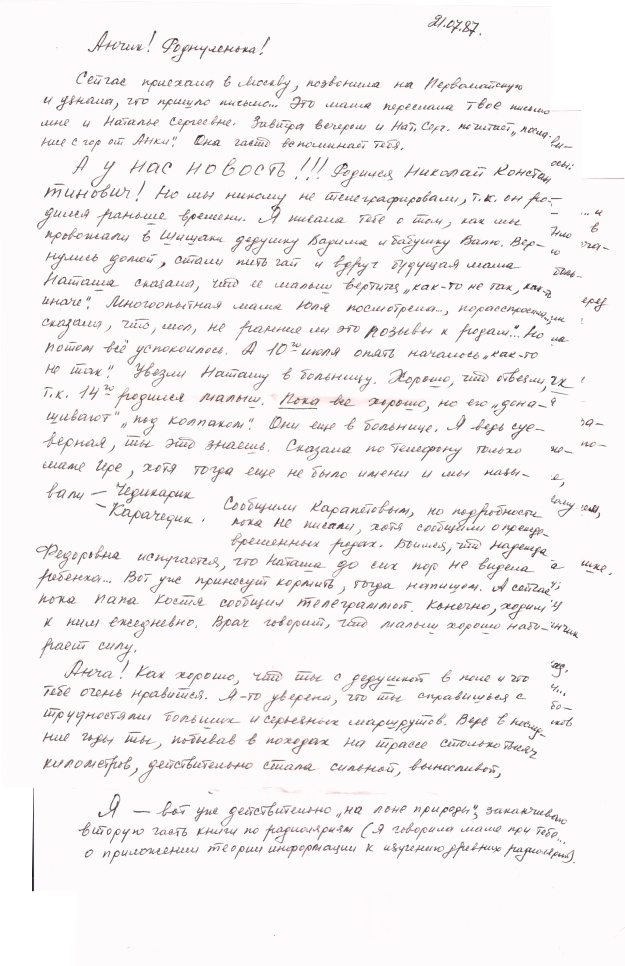 21.07.87.
Анчик! Роднуленька!
Сейчас приехала в Москву, позвонила на Первомайскую
и узнала, что пришло письмо... Это мама переслала твое письмо
мне и Наталье Сергеевне. Завтра вечером и Нат. Серг. почитает „посла-
ние с гор от Анки". Она часто вспоминает тебя.
А у нас новость!!! Родился Николай Констан
тинович! Но мы никому не телеграфировали, т.к. он ро-
дился раньше времени. Я писала тебе о том, как мы
провожали в Шишаки дедушку Вадима и бабушку Валю. Вер-
нулись домой, стали пить чай и вдруг будущая мама
Наташа сказала, что ее малыш вертится „как-то не так, как-то
иначе". Многоопытная мама Юля посмотрела..., порасспросила,
сказала, что, мол, не ранние ли это позывы к родам"... Но
потом всё успокоилось. А 10го июля опять началось „как-то
не так". Увезли Наташу в больницу. Хорошо, что отвезли,
т.к. 14го родился малыш. Пока все хорошо, но его „дона-
шивают" „под колпаком". Они еще в больнице. Я ведь суе-
верная, ты это знаешь. Сказала по телефону только
маме Ире, хотя тогда еще не было имени и мы назы-
вали – Чедикарик
– Карачедик. Сообщили Карапетовым, но подробности
пока не писали, хотя сообщили о прежде-
временных родах. Боимся, что Надежда
Федоровна испугается, что Наташа до сих пор не видела
ребенка... Вот уже принесут кормить, тогда напишем. А сейчас
пока папа Костя сообщил телеграммой. Конечно, ходим
к ним ежедневно. Врач говорит, что малыш хорошо наби-
рает силу.
Анча! Как хорошо, что ты с дедушкой в поле и что
тебе очень нравится. Я-то уверена, что ты справишься с
трудностями больших и серьезных маршрутов. Ведь в послед-
ние годы ты, побывав в походах на трассе столько тысяч
километров, действительно стала сильной, выносливой,
Я — вот уже действительно „на лоне природы", заканчиваю
вторую часть книги по радиоляриям (я говорила маме при тебе...
о приложении теории информации к изучению древних радиолярий).